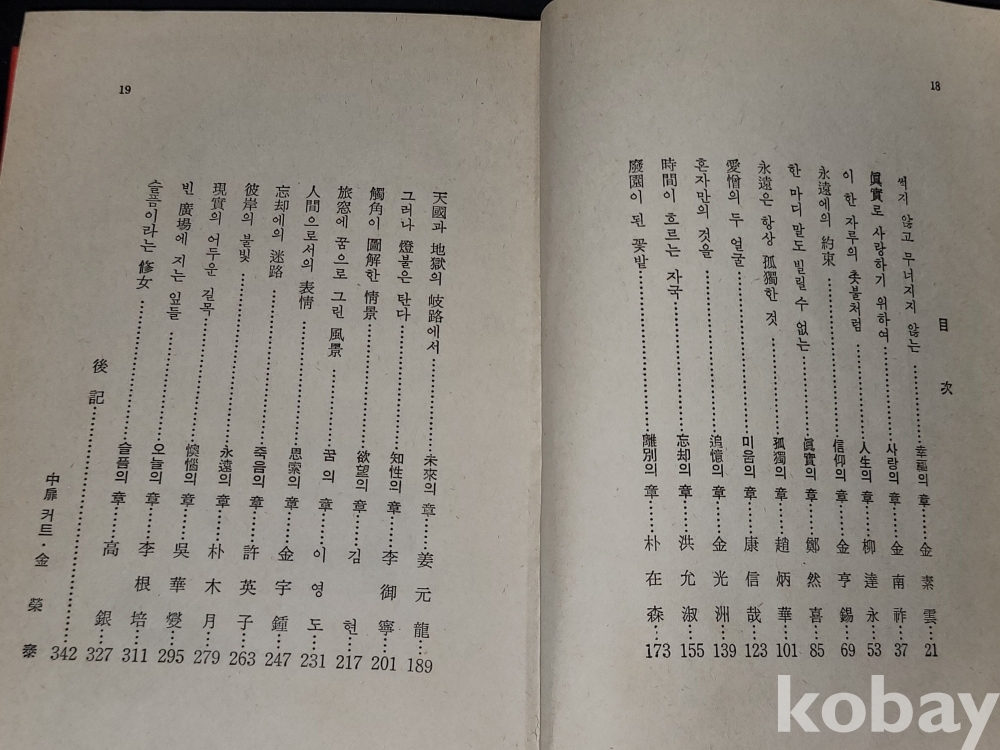 18
目次
썩지 않고 무너지지 않는……幸福의 章……金素雲 21
眞實로 사랑하기 위하여……사랑의 章……金南祚 37
이 한 자루의 촛불처럼……人生의 章……柳達永 53
永遠에의 約束……信仰의 章……金亨錫 69
한 마디 말도 빌릴 수 없는……眞實의 章……鄭然喜 85
永遠은 항상 孤獨한 것……孤獨의 章……趙炳華 101
愛憎의 두 얼굴……미움의 章……康信哉 123
혼자만의 것을……追憶의 章……金光洲 139
時間이 흐르는 자국……忘却의 章……洪允淑 155
廢園이 된 꽃밭……離別의 章……朴在森 173
19
天國과 地獄의 岐路에서……未來의 章……姜元龍 189
그러나 燈불은 탄다……知性의 章……李御寧 201
觸角이 圖解한 情景……欲望의 章……김현 217
旅窓에 꿈으로 그린 風景……꿈의 章……이영도 231
人間으로서의 表情……思索의 章……金宇鍾 247
忘却에의 迷路……죽음의 章……許英子 263
彼岸의 불빛……永遠의 章……朴木月 279
現實의 어두운 길목……懊惱의 章……吳華燮 295
빈 廣場에 지는 잎들……오늘의 章……李根培 311
슬픔이라는 修女……슬픔의 章……高銀 327
後記……342
中扉 커트·金榮泰
kobay